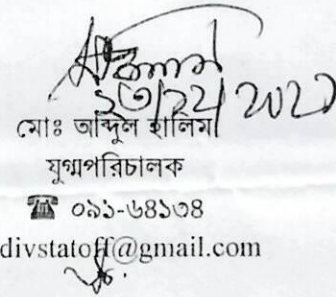 মোঃ আব্দুল হালিম
যুগ্মপরিচালক
☎ ০৯১-৬৪১৩৪
divstatoff@gmail.com